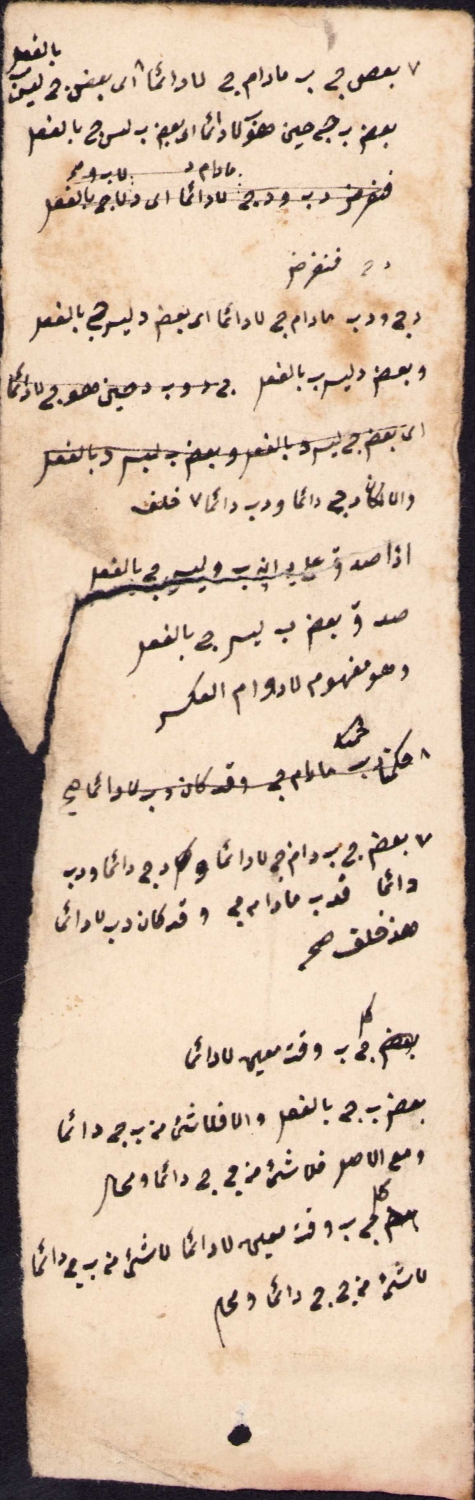 بالفعل
٧ بعض ج ب مادام ج لا دائما اى بعض ج ليس ب
بعض ب ج حين هو ب لا دائما اى بعض ب ليس ج بالفعل
مادام د لا ب و ج
فنفرض د ب و د ج لا دائما اى د لا ج بالفعل
د ج فنفرض
د ج و د ب مادام ج لا دائما اى بعض د ليس ج بالفعل
و بعض د ليس ب بالفعل ج د و ب د حين هو ج لا دائما
اى بعض ج ليس د بالفعل و بعض ب ليس د بالفعل
والا لكان د ج دائما و د ب دائما ٧ خلف
اذا صدق على د انه ب وليس ج بالفعل
صدق بعض ب ليس ج بالفعل
وهو مفهوم لا دوام العكس
مادام ج وقد كان د ب لا دائما
٧ بعض ج ب مادام ج لا دائما و د ج دائما و د ب
دائما فد ب مادام ج و قد كان د ب لا دائما
هذا خلف صح
كل
بعض ج ب وقت معين لا دائما
بعض ب ج بالفعل والا فلا شئ من ب ج دائما
ومع الاصل فلا شئ من ج ج دائما ومحال
كل
بعض ج ب وقت معين لا دائما لا شئ من ب ج دائما
لا شئ من ج ج دائما ومحال